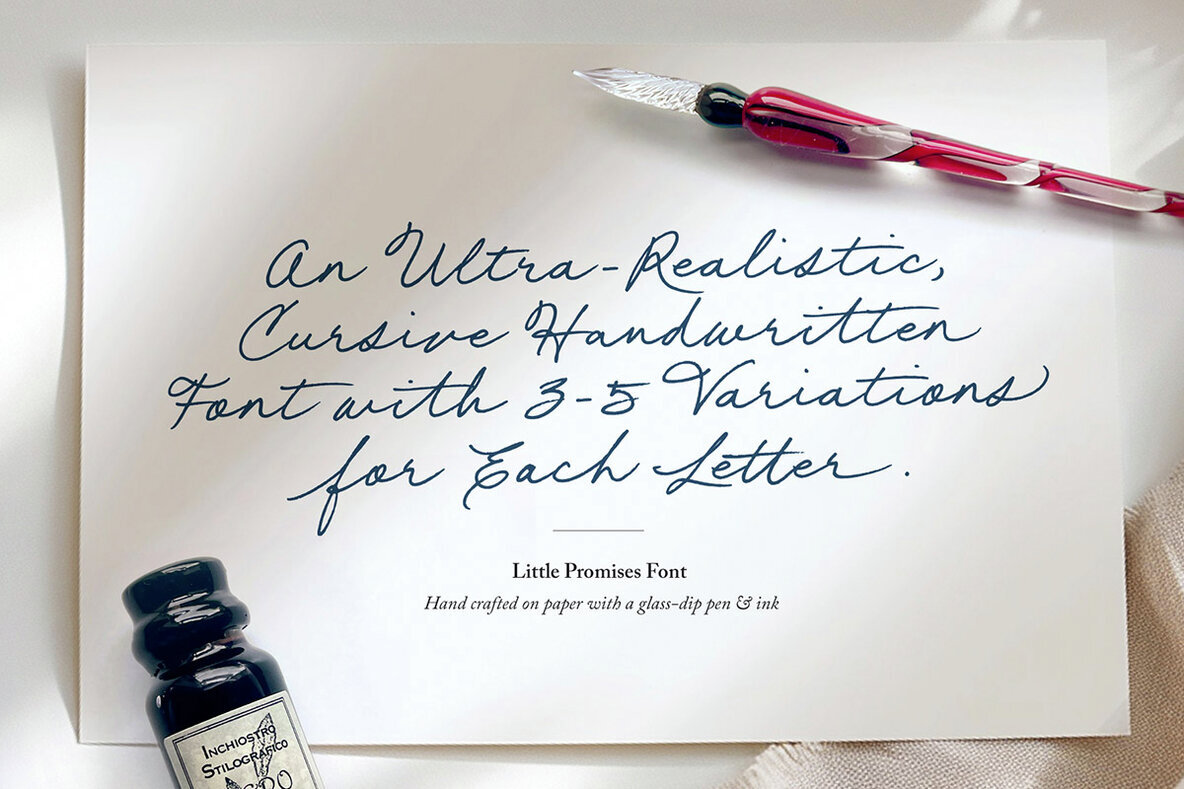 An Ultra-Realistic,
Cursive Handwritten
Font with 3-5 Variations
for Each Letter.
Little Promises Font
Hand crafted on paper with a glass-dip pen & ink
Inchiostro
Stilografico